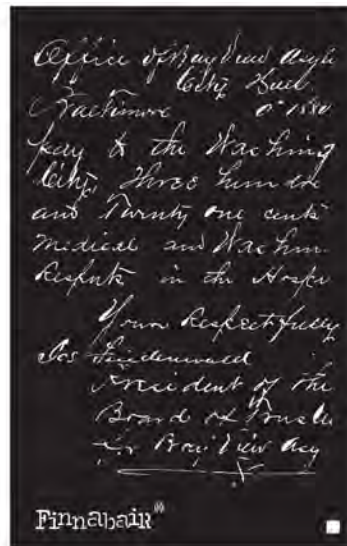 Office of Bay View Asyl
City
Baltimore 1880
pay to the Washing
City, Three hundre
and Twenty one cents
medical and Washin
in the Hospi
Your Respectfully
Jos
President of the
Board of Truste
for Bay View Asy
Finnabair